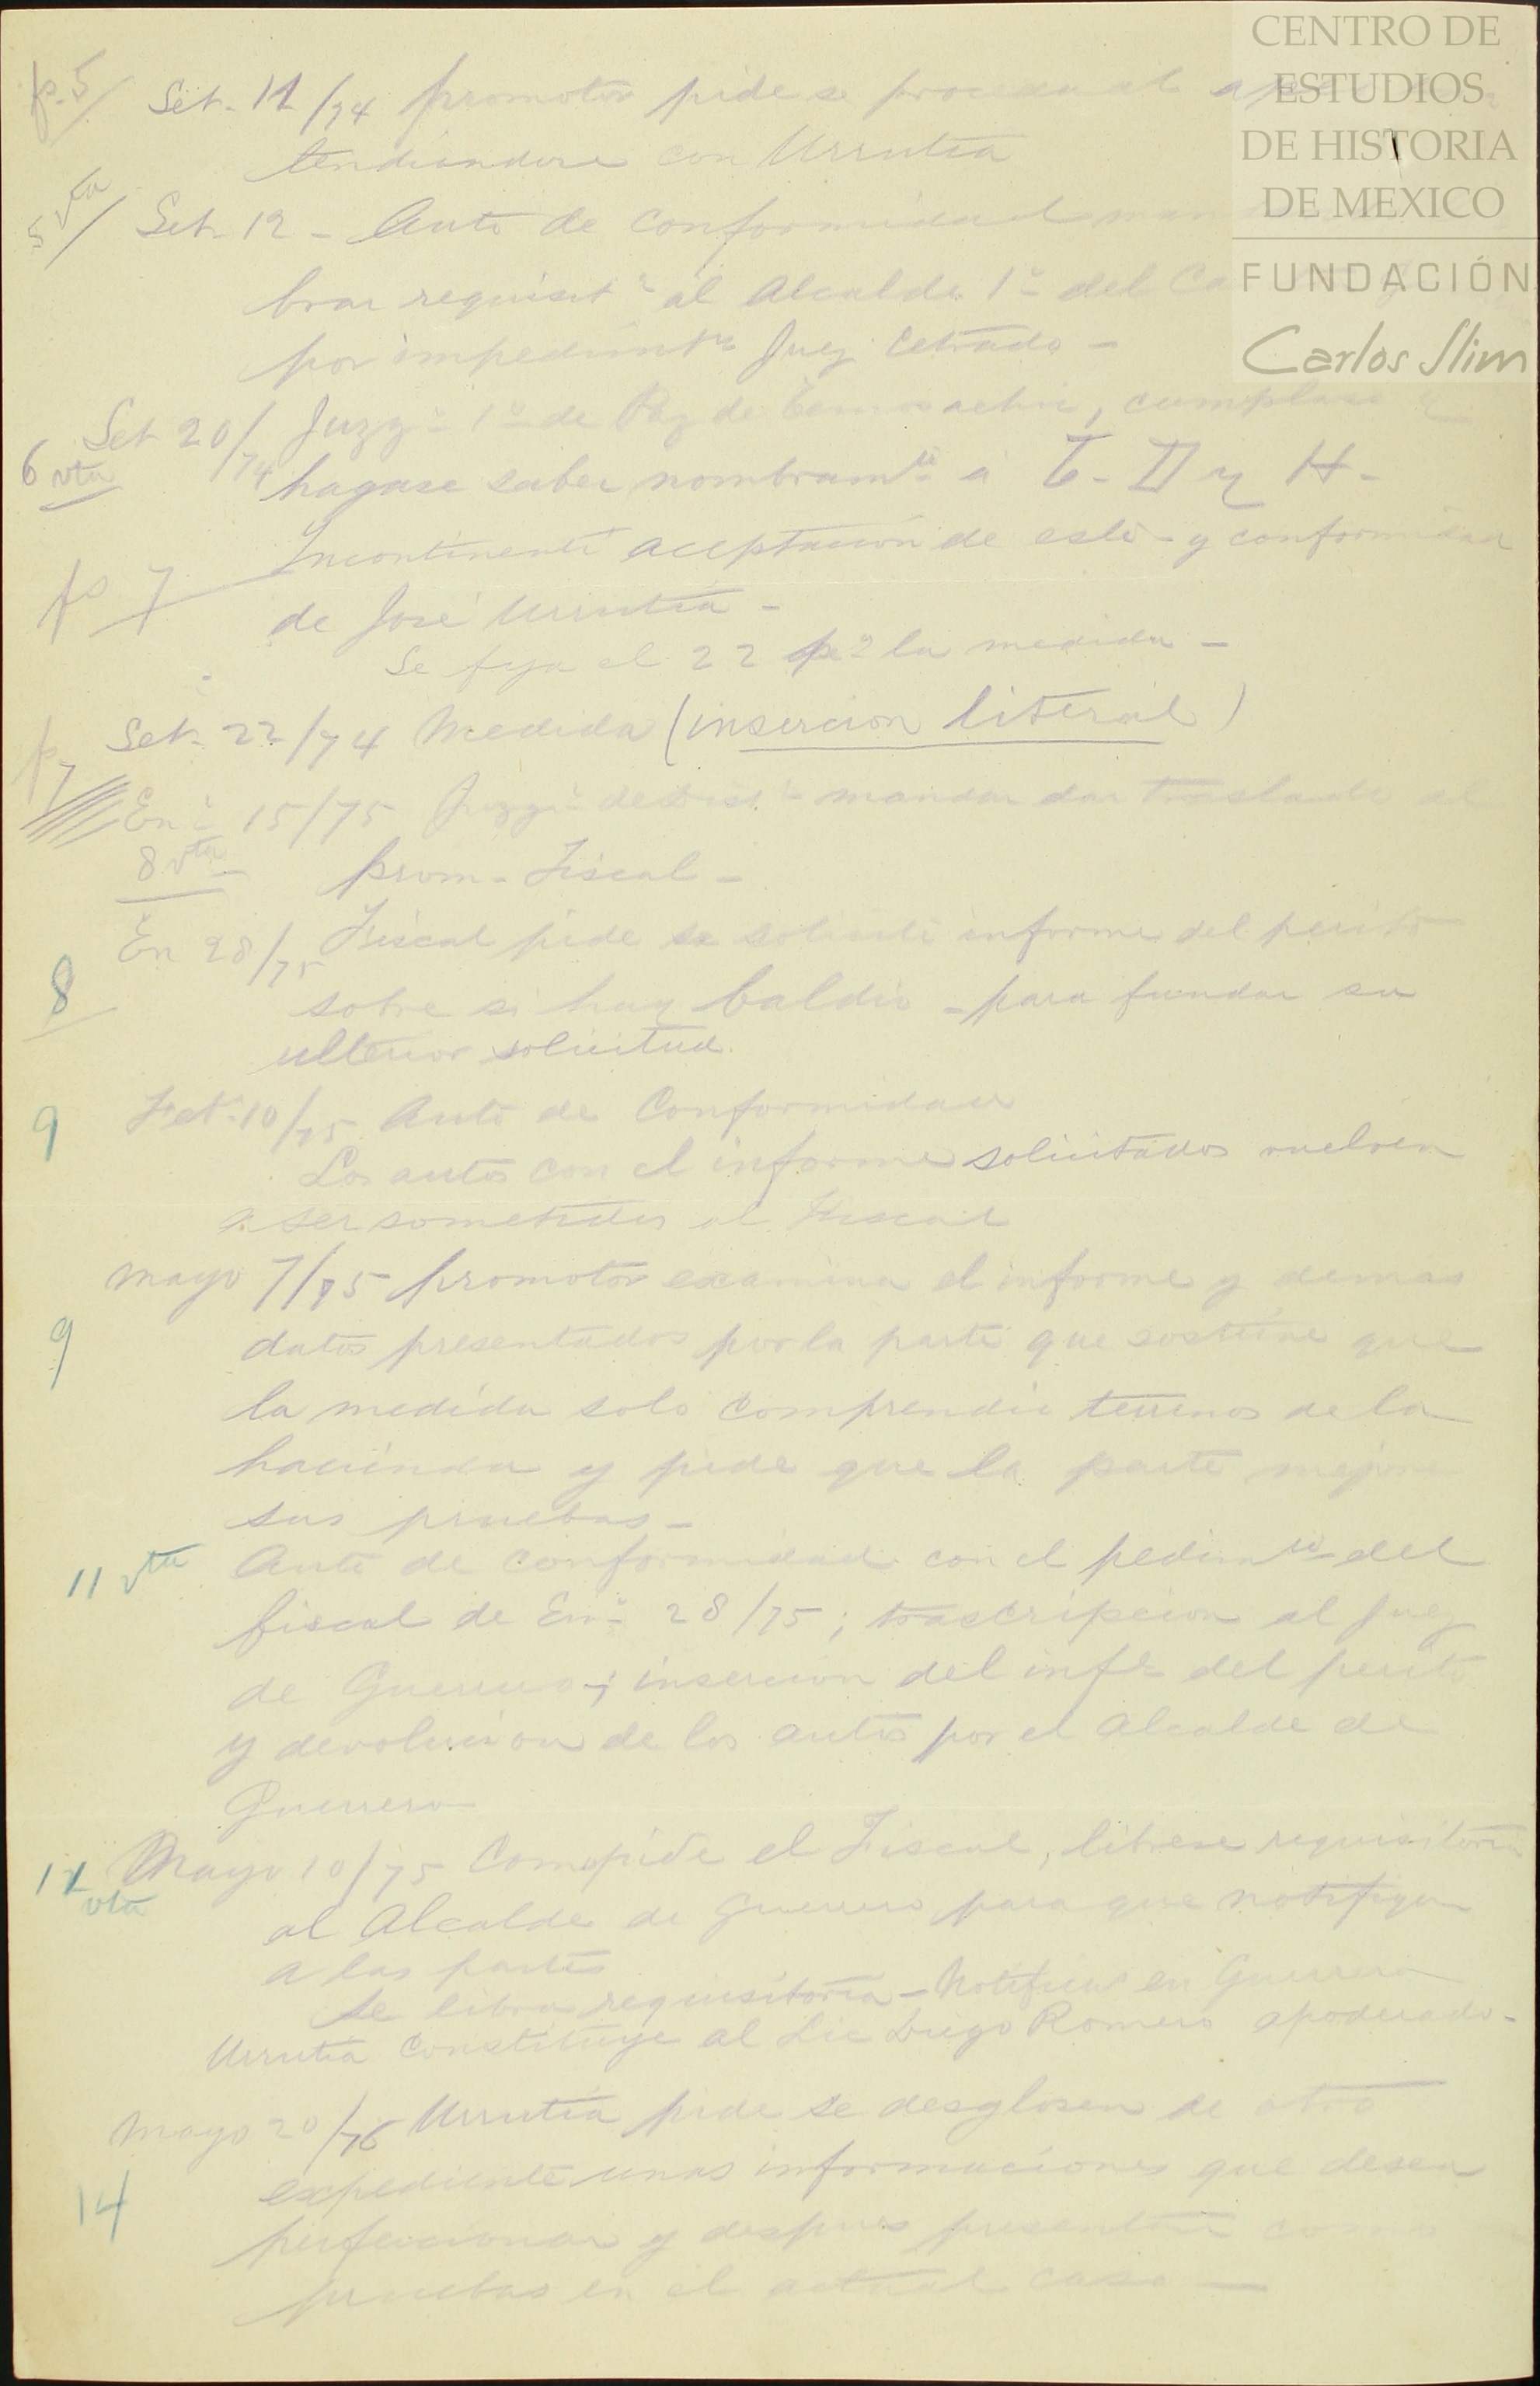 CENTRO DE
ESTUDIOS
DE HISTORIA
DE MEXICO
FUNDACIÓN
Carlos Slim
fs. 5/ Set. 11/74 promotor pide se proceda al
tendiendose con Urrutia
5 vta/ Set. 12 - Auto de conformidad
brar requisit.ª al Alcalde 1º del
por impedimto Juez Letrado -
Set 20/74 Juzgº 1º de Paz de Temosachic, cumplase y
6 vta hagase saber nombramto á T. D y H -
fs 7 Incontinenti aceptacion de este - y conformidad
de José Urrutia -
Se fija el 22 pª la medida -
fs 7 Set. 22/74 Medida (insercion literal)
Enº 15/75 Juzgº de Distº mandar dar traslado al
8 vta prom. Fiscal -
En 28/75 Fiscal pide se solicite informe del perito
8 sobre si hay baldio - para fundar su
ulterior solicitud.
9 Feb. 10/75 Auto de Conformidad
Los autos con el informe solicitados vuelven
a ser sometidos al Fiscal
Mayo 7/75 promotor examina el informe y demas
9 datos presentados por la parte que sostiene que
la medida solo comprendio terrenos de la
hacienda y pide que la parte mejore
sus pruebas -
11 vta Auto de conformidad con el pedimto del
fiscal de Enº 28/75; trascripcion al Juez
de Guerrero -; insercion del infe del perito
y devolucion de los autos por el Alcalde de
Guerrero
11 vta Mayo 10/75 Como pide el Fiscal, librese requisitoria
al Alcalde de Guerrero para que notifique
a las partes
Se libra requisitoria - Notifica en Guerrero
Urrutia constituye al Lic Diego Romero apoderado -
Mayo 20/76 Urrutia pide se desglosen de otro
14 expediente unas informaciones que desea
perfeccionar y despues presentar como
pruebas en el actual caso -